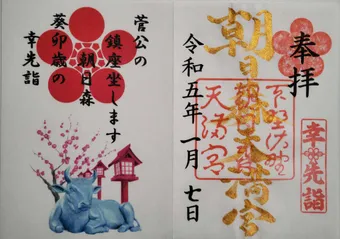 奉拝
朝日森天満宮
下野佐野
朝日森
天満宮
幸先詣
令和五年一月七日
菅公の
鎮座坐します
朝日森
癸卯歳の
幸先詣